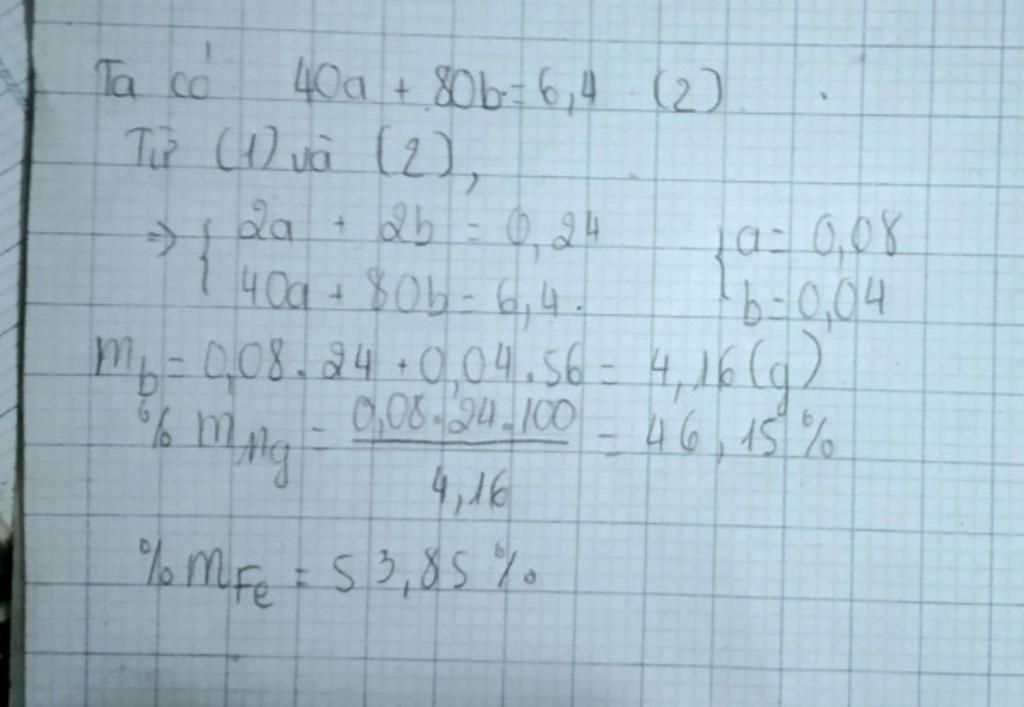 Ta có 40a + 80b = 6,4 (2).
Từ (1) và (2),
=> { 2a + 2b = 0,24 { a = 0,08
40a + 80b = 6,4. b = 0,04
m_b = 0,08.24 + 0,04.56 = 4,16 (g)
% m_Mg = 0,08.24.100 / 4,16 = 46,15%
% m_Fe = 53,85%